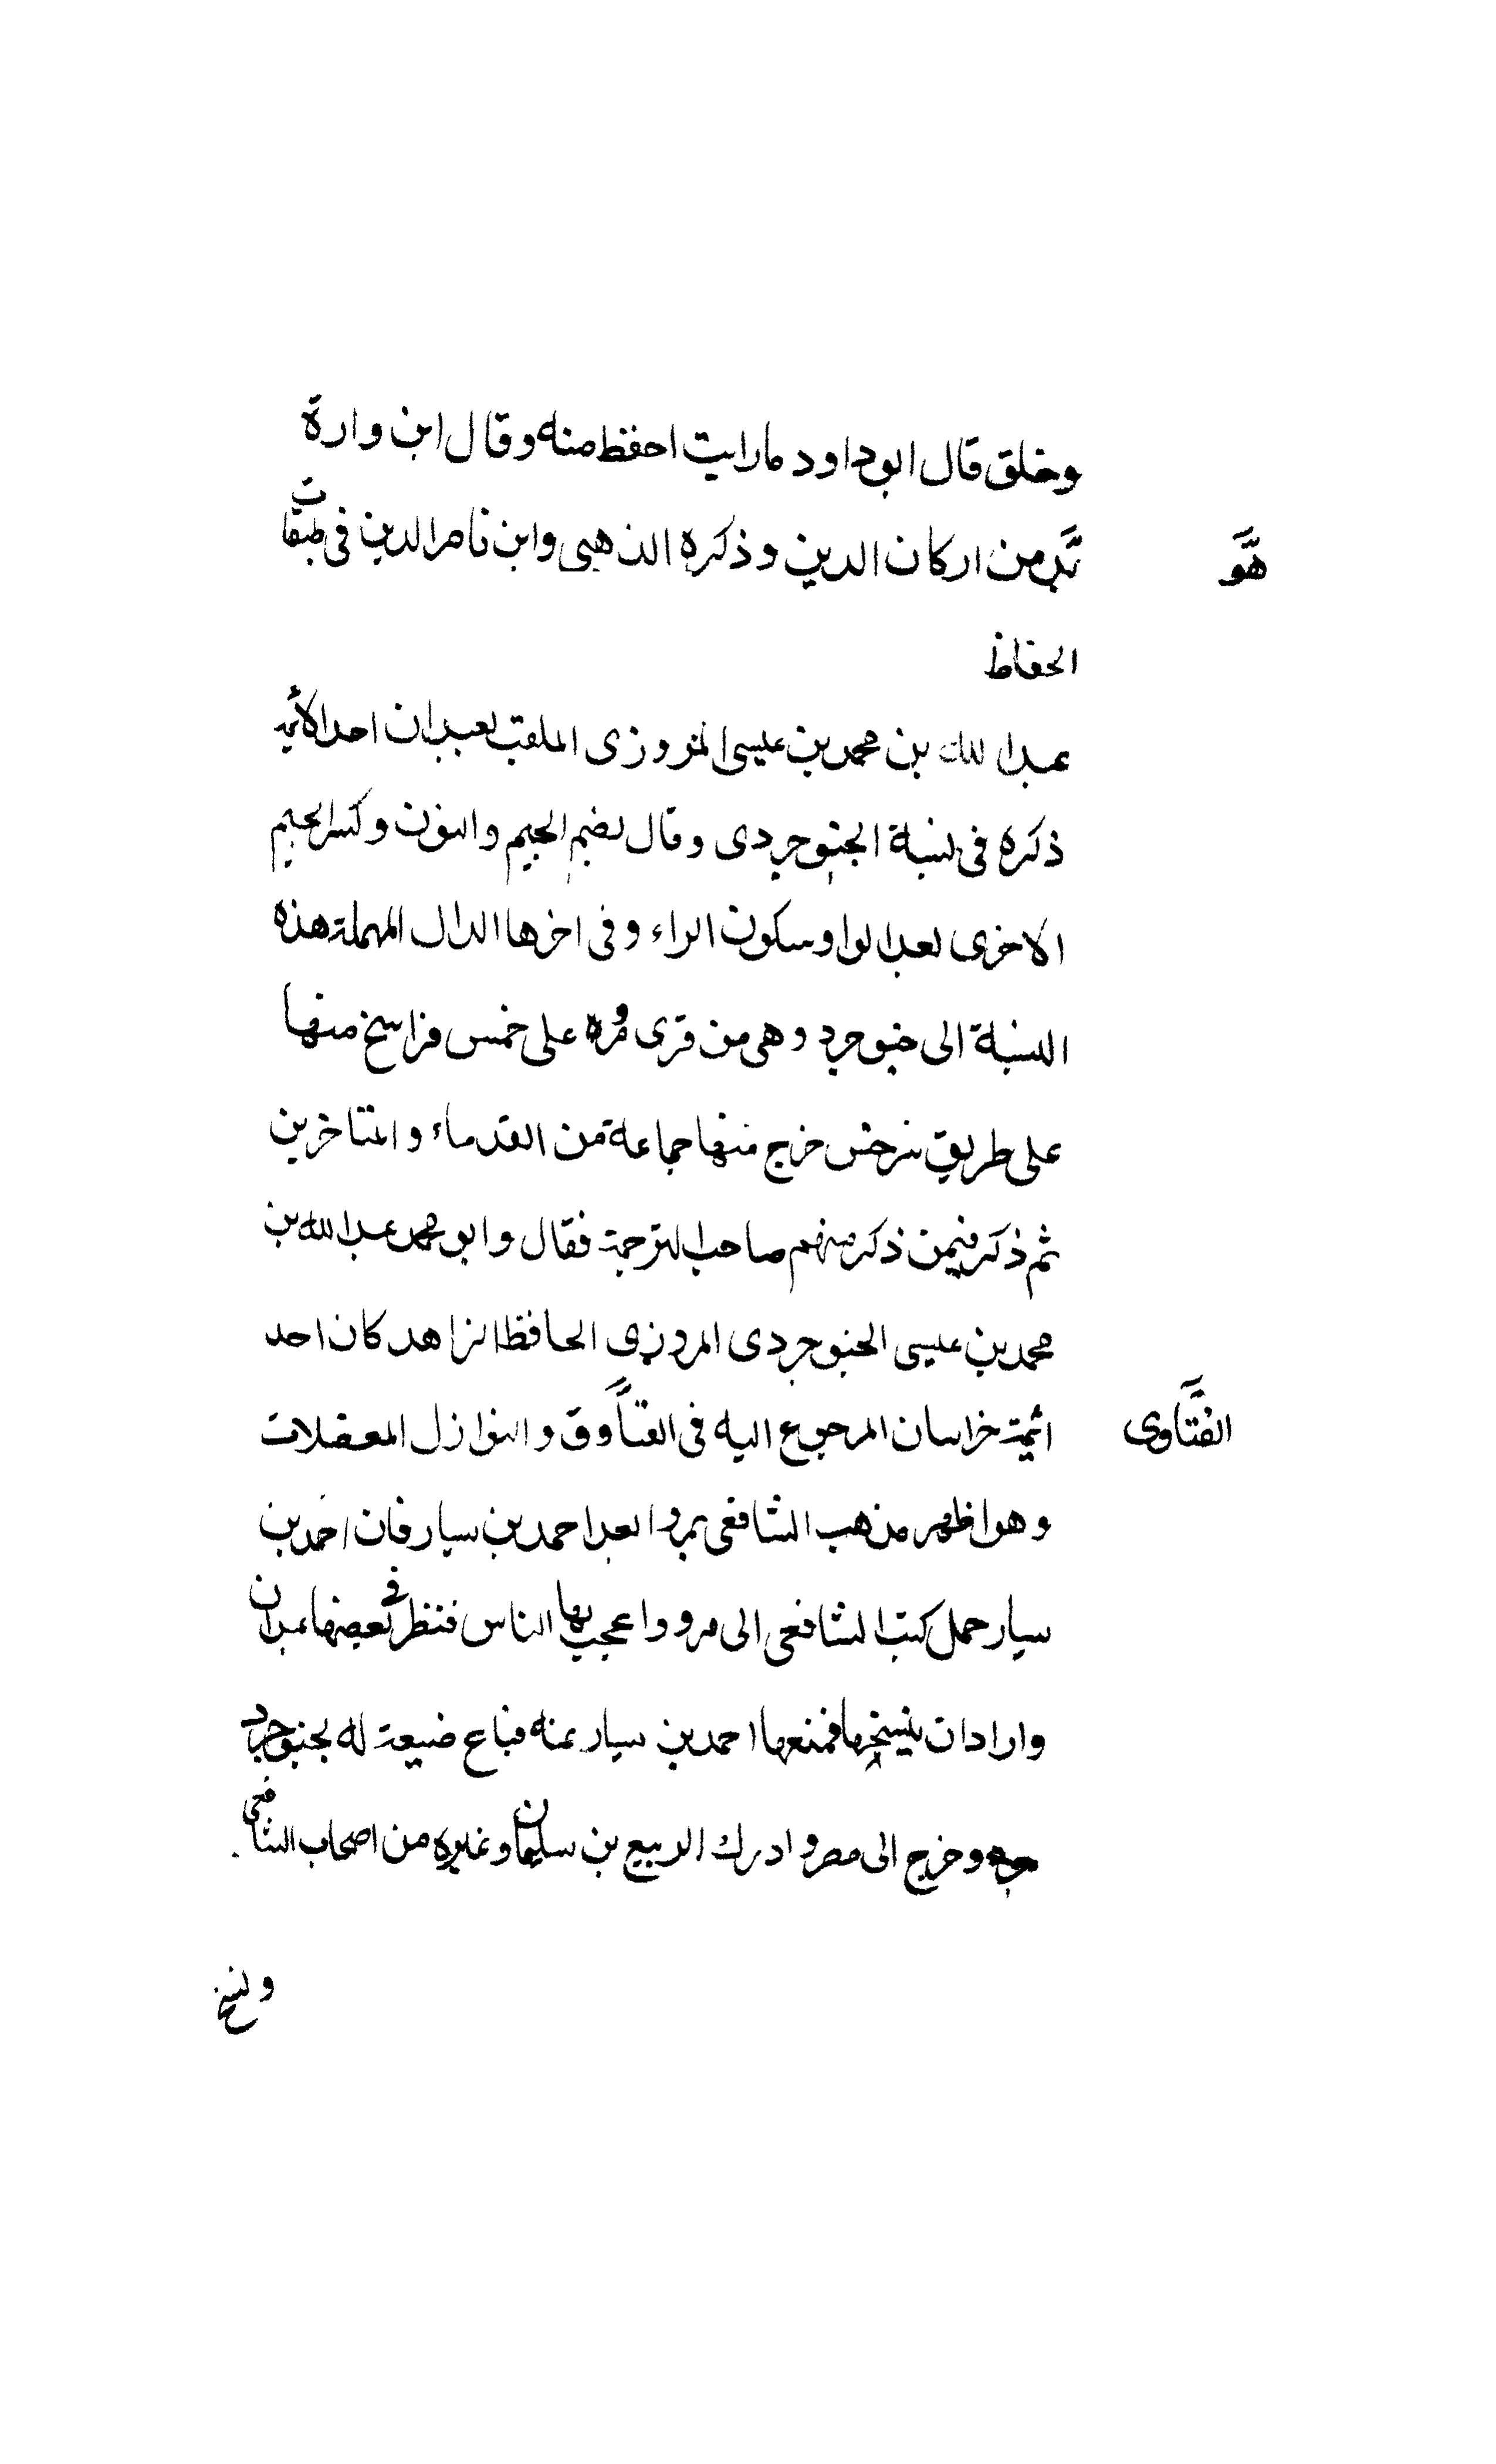 وخلق قال ابوداود مارايت احفظ منه وقال ابن وارة
من اركان الدين وذكره الذهبى وابن ناصر الدين فى طبقات
هو
الحفاظ
عبد الله بن محمد بن عيسى المروزى الملقب بعبدان احد الائمة
ذكره فى نسبة الجنوجردى وقال بضم الجيم والنون وكسر الجيم
الاخرى بعد الواو وسكون الراء وفى اخرها الدال المهملة هذه
النسبة الى جنوجرد وهى من قرى مرو على خمس فراسخ منها
على طريق سرخس خرج منها جماعة من القدماء والمتاخرين
ثم ذكر فيمن ذكر منهم صاحب الترجمة فقال وابو محمد عبد الله بن
محمد بن عيسى الجنوجردى المروزى الحافظ الزاهد كان احد
ائمة خراسان المرجوع اليه فى الفتاوى والنوازل المعضلات
الفتاوى
وهو اظهر مذهب الشافعى بمرو بعد احمد بن سيار فان احمد بن
سيار حمل كتب الشافعى الى مرو واعجب بها الناس فنظر فى بعضها عبدان
واراد ان ينسخها فمنعها احمد بن سيار عنه فباع ضيعة له بجنوجرد
وخرج الى مصر وادرك الربيع بن سليمان وغيره من اصحاب الشافعى
ونسخ